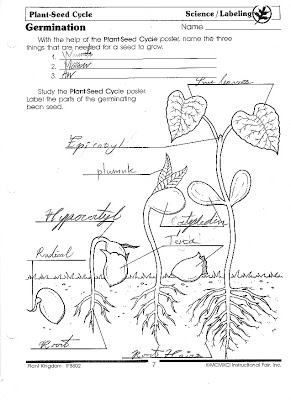 Plant-Seed Cycle
Science/Labeling
Germination
Name
With the help of the Plant-Seed Cycle poster, name the three
things that are needed for a seed to grow.
1. Warmth
2. Moisture
3. Air
True leaves
Study the Plant-Seed Cycle poster.
Label the parts of the germinating
bean seed.
Epicotyl
plumule
Hypocotyl
Cotyledon
Testa
Radical
Root
Root Hairs
Plant Kingdom IF8802
7
©MCMXCI Instructional Fair, Inc.